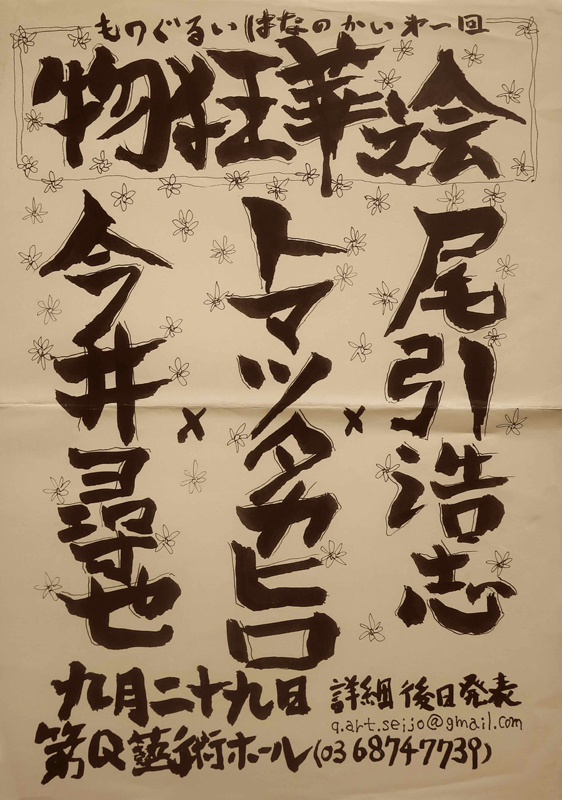 ものぐるいはなのかい 㐧一回
物狂華之会
尾引浩志
×
トマツタカヒロ
×
今井尋也
九月二十九日
詳細後日発表
q.art.seijo@gmail.com
第Q藝術ホール(03 68747739)